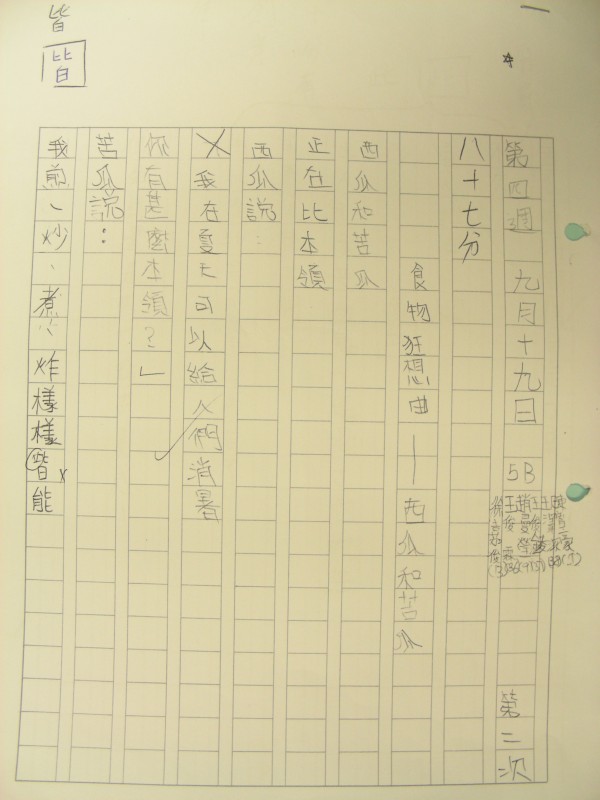 第四週 九月十九日 5B 第二次
八十七分
食物狂想曲—西瓜和苦瓜
西瓜和苦瓜
正在比本領
西瓜說：
我在夏天可以給人們消暑
你有甚麼本領？」
苦瓜說：
我煎、炒、煮、炸樣樣皆能
皆
皆